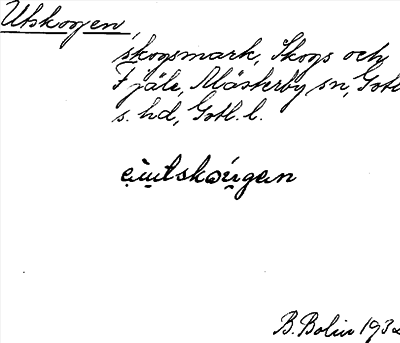 Utskogen,
skogsmark, Skogs och
Fjäle, Mästerby sn, Gotl.
s. hd, Gotl. l.
B. Bolin 193